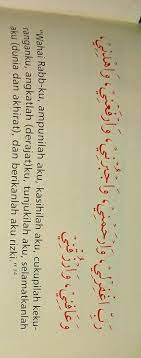 رَبِّ اغْفِرْ لِيْ، وَارْحَمْنِيْ، وَاجْبُرْنِيْ، وَارْفَعْنِيْ، وَاهْدِنِيْ،
وَعَافِنِيْ، وَارْزُقْنِيْ
"Wahai Rabb-ku, ampunilah aku, kasihilah aku, cukupilah keku-
ranganku, angkatlah (derajat)ku, tunjukilah aku, selamatkanlah
aku (dunia dan akhirat), dan berikanlah aku rizki."